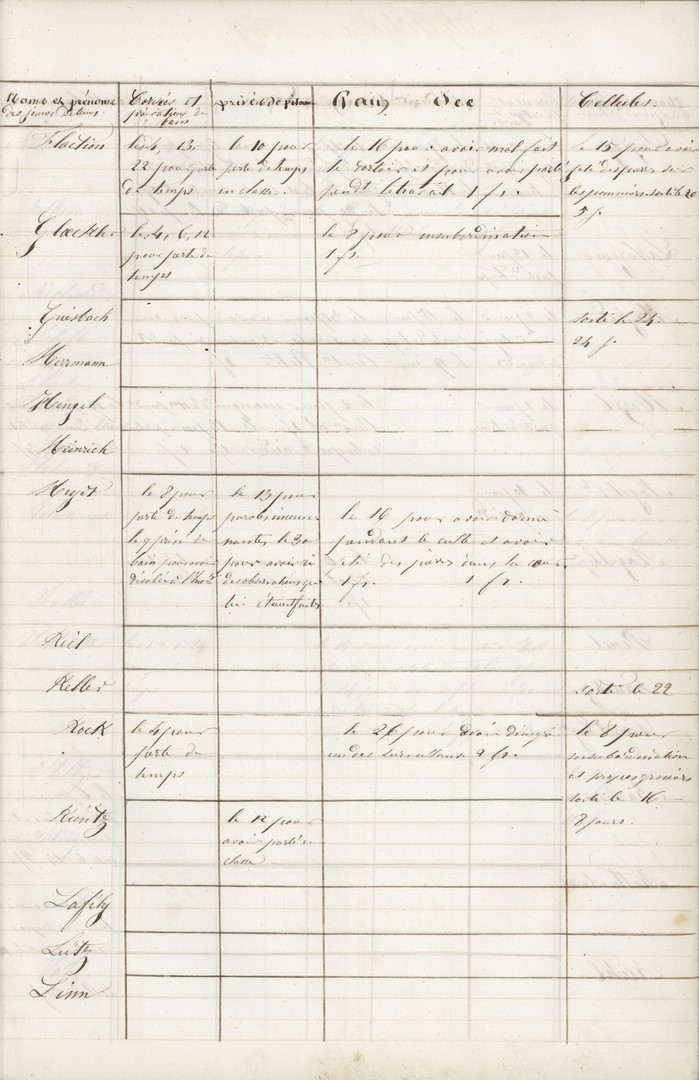 Noms et prénoms
des jeunes détenus.
Corvées et
privations de
bains
privés de pitance
Pain Sec
Cellules.
Flaction
les 4, 13
22 pour perte
de temps
le 10 pour
perte de temps
en classe.
le 16 pour avoir mal fait
le dortoir et pour avoir parlé
pendt le travail 1 fs.
le 15 pour avoir
jeté des pierres sur
les pommiers. sorti le 20
5 j.
les 4, 6, 12
pour perte de
temps
le 8 pour insubordination
1 fs.
Griesbach
sorti le 24.
24 j.
Herrmann
Hengel
Heinrich
le 8 pour
perte de temps
le 9 privé de
bain pour avoir
le 13 pour
le 30
pour avoir ri
des observations qui
lui étaient faites
le 16 pour avoir dormi
pendant le culte et avoir
jeté des pierres dans la cour.
1 fs. 1 fs.
Kiel
Keller
sorti le 22
Kock
le 4 pour
perte de
temps
le 26 pour avoir
un des surveillants 2 fs.
le 8 pour
insubordination
et propos grossiers
sorti le 16
8 jours.
Kuntz
le 12 pour
avoir parlé en
classe
Lafily
Lutz
Linn